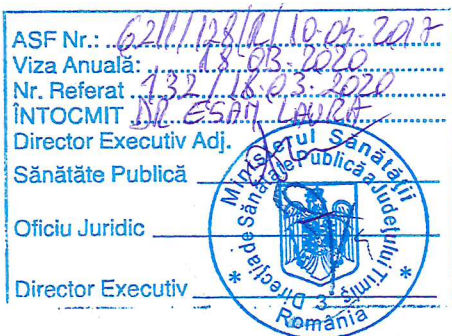 ASF Nr.: 6211/128/R/10-04-2017
Viza Anuală: 18-03-2020
Nr. Referat 132/18.03.2020
ÎNTOCMIT DR ESAM LAURA
Director Executiv Adj.
Sănătăte Publică
Oficiu Juridic
Director Executiv
Ministerul Sănătății
Direcția de Sănătate Publică a Județului Timiș
3
România